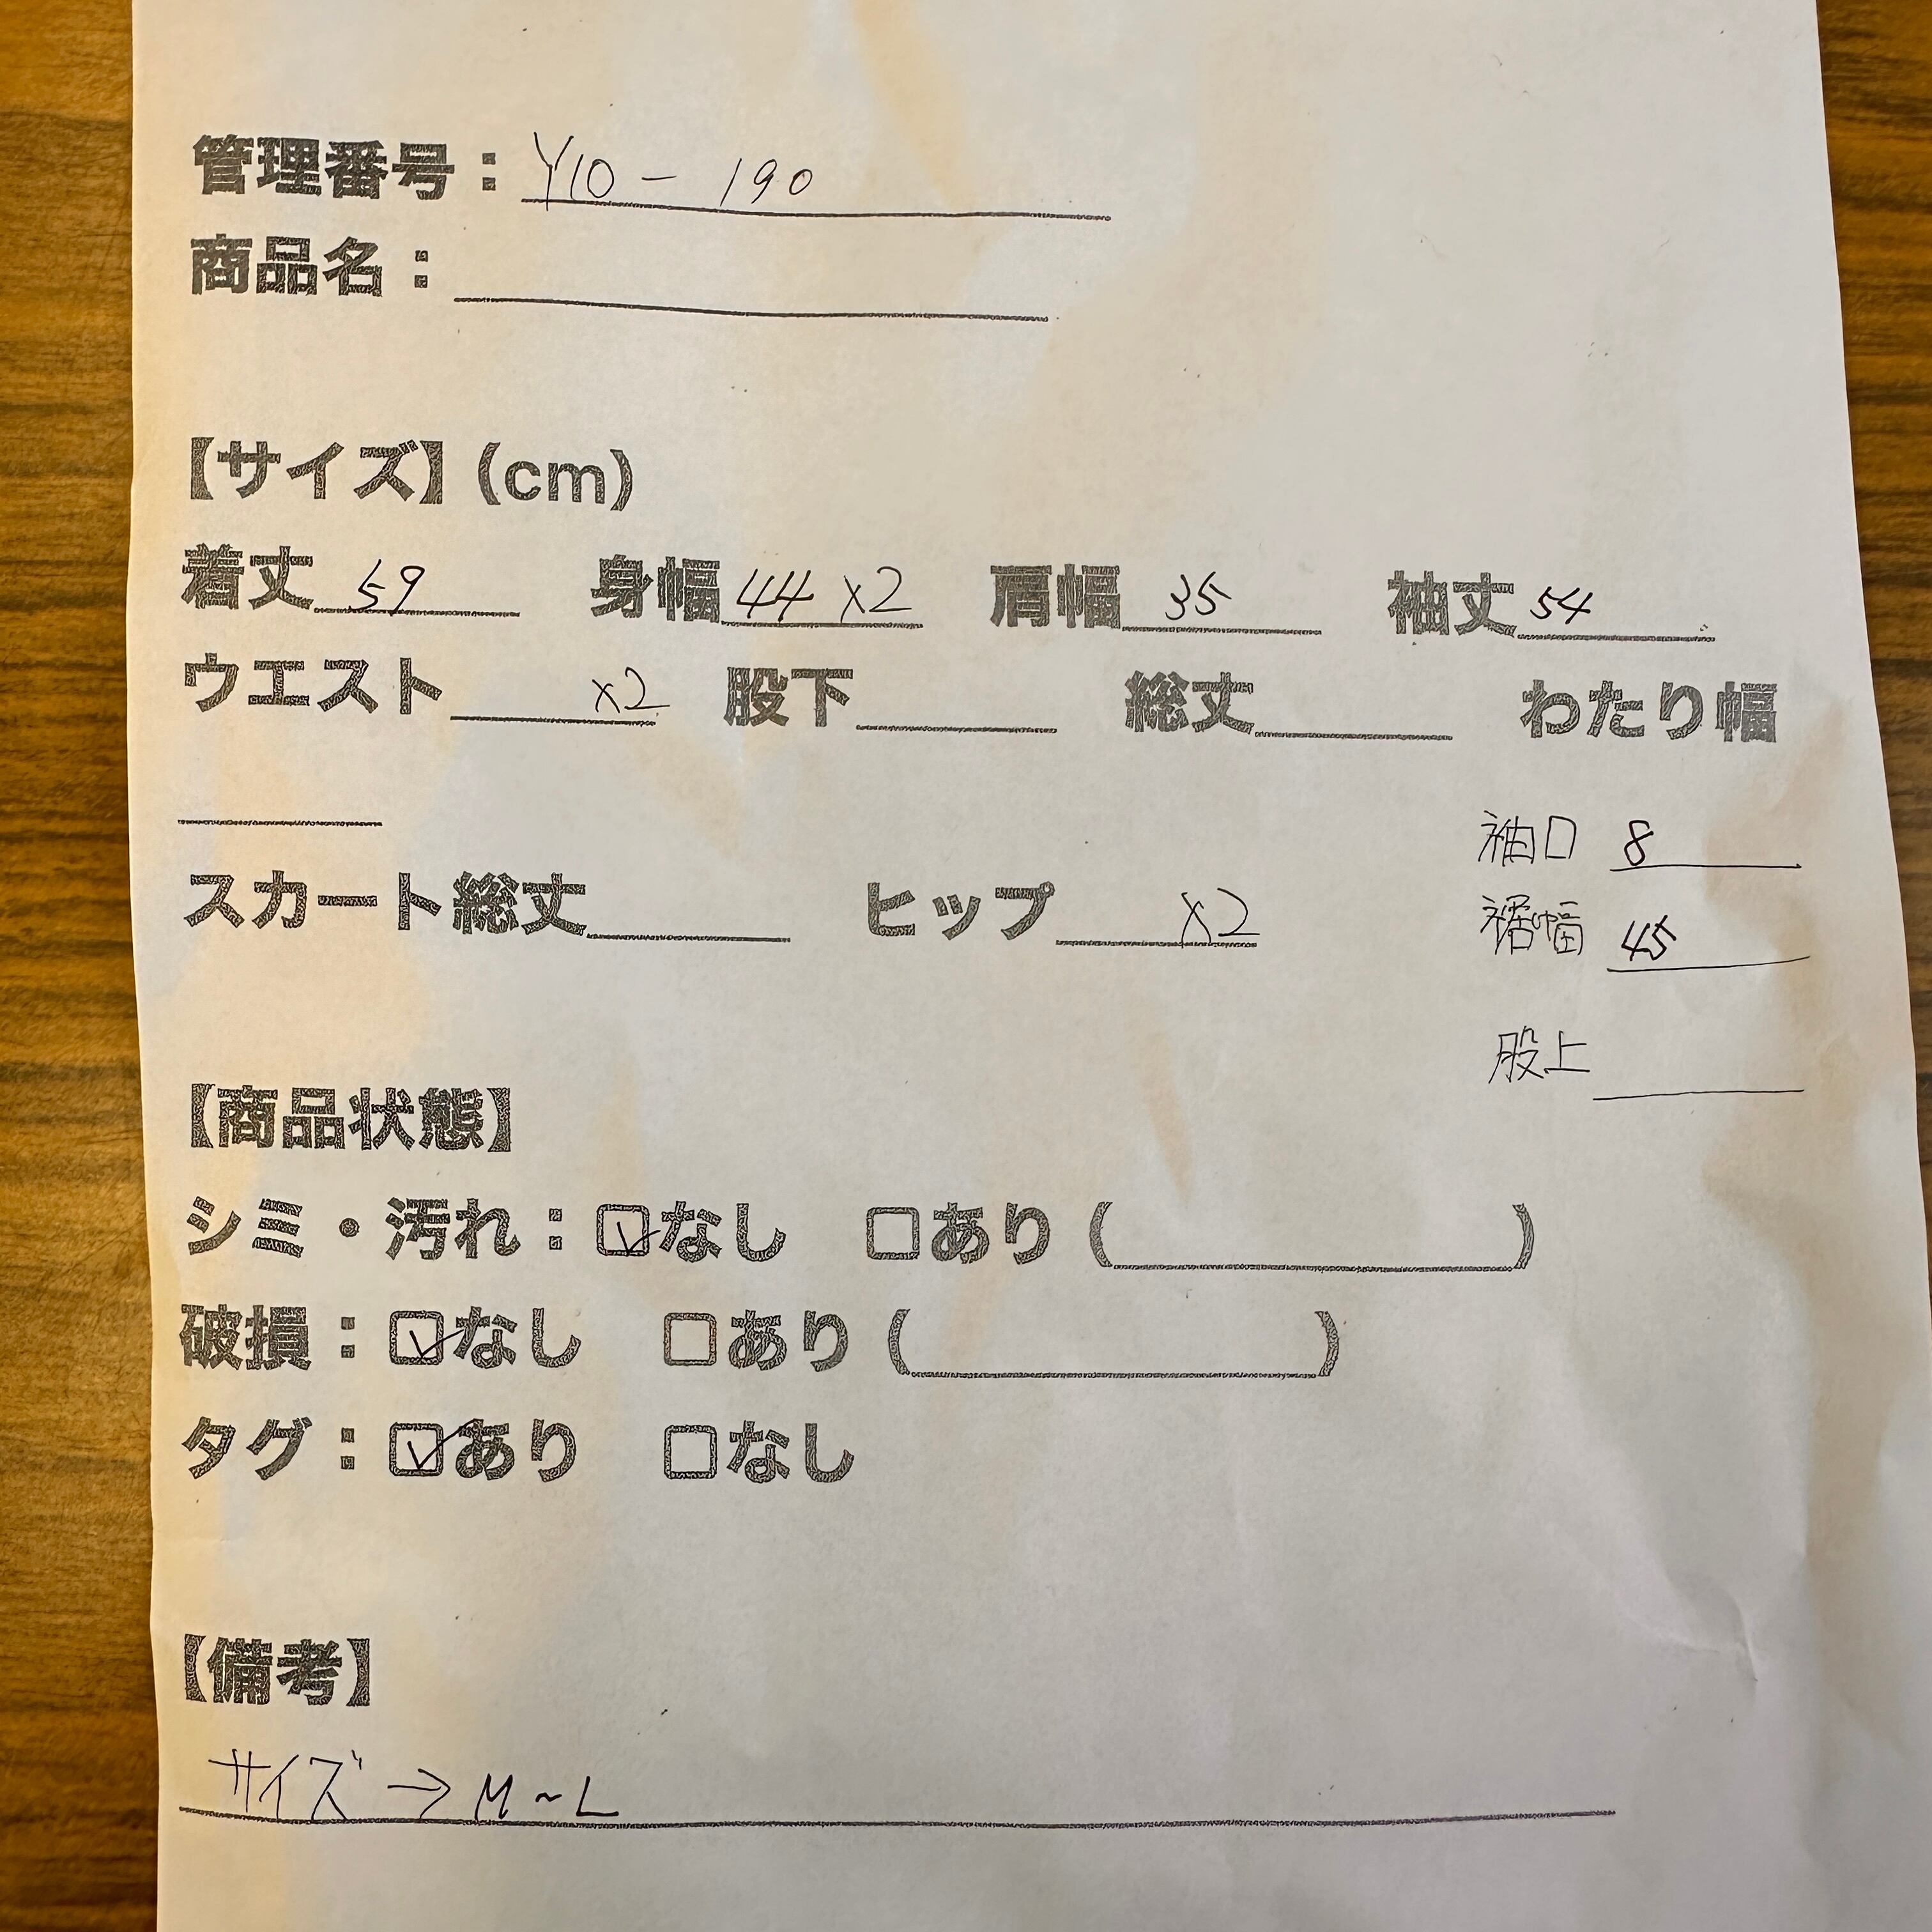 管理番号：Y10 - 190
商品名：
【サイズ】(cm)
着丈 59 身幅 44 x2 肩幅 35 袖丈 54
ウエスト x2 股下 総丈 わたり幅
袖口 8
スカート総丈 ヒップ x2
裾幅 45
股上
【商品状態】
シミ・汚れ：☑なし □あり（ ）
破損：☑なし □あり（ ）
タグ：☑あり □なし
【備考】
サイズ → M ~ L